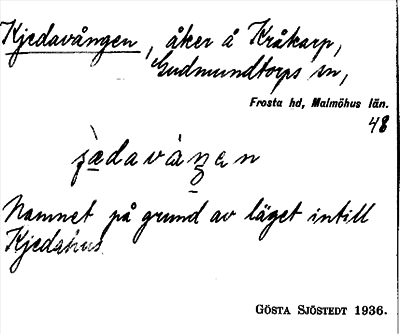 Kjedavången, åker å Kråkarp,
Gudmundtorps sn,
Frosta hd, Malmöhus län.
48
Namnet på grund av läget intill
Kjedahus.
GÖSTA SJÖSTEDT 1936.